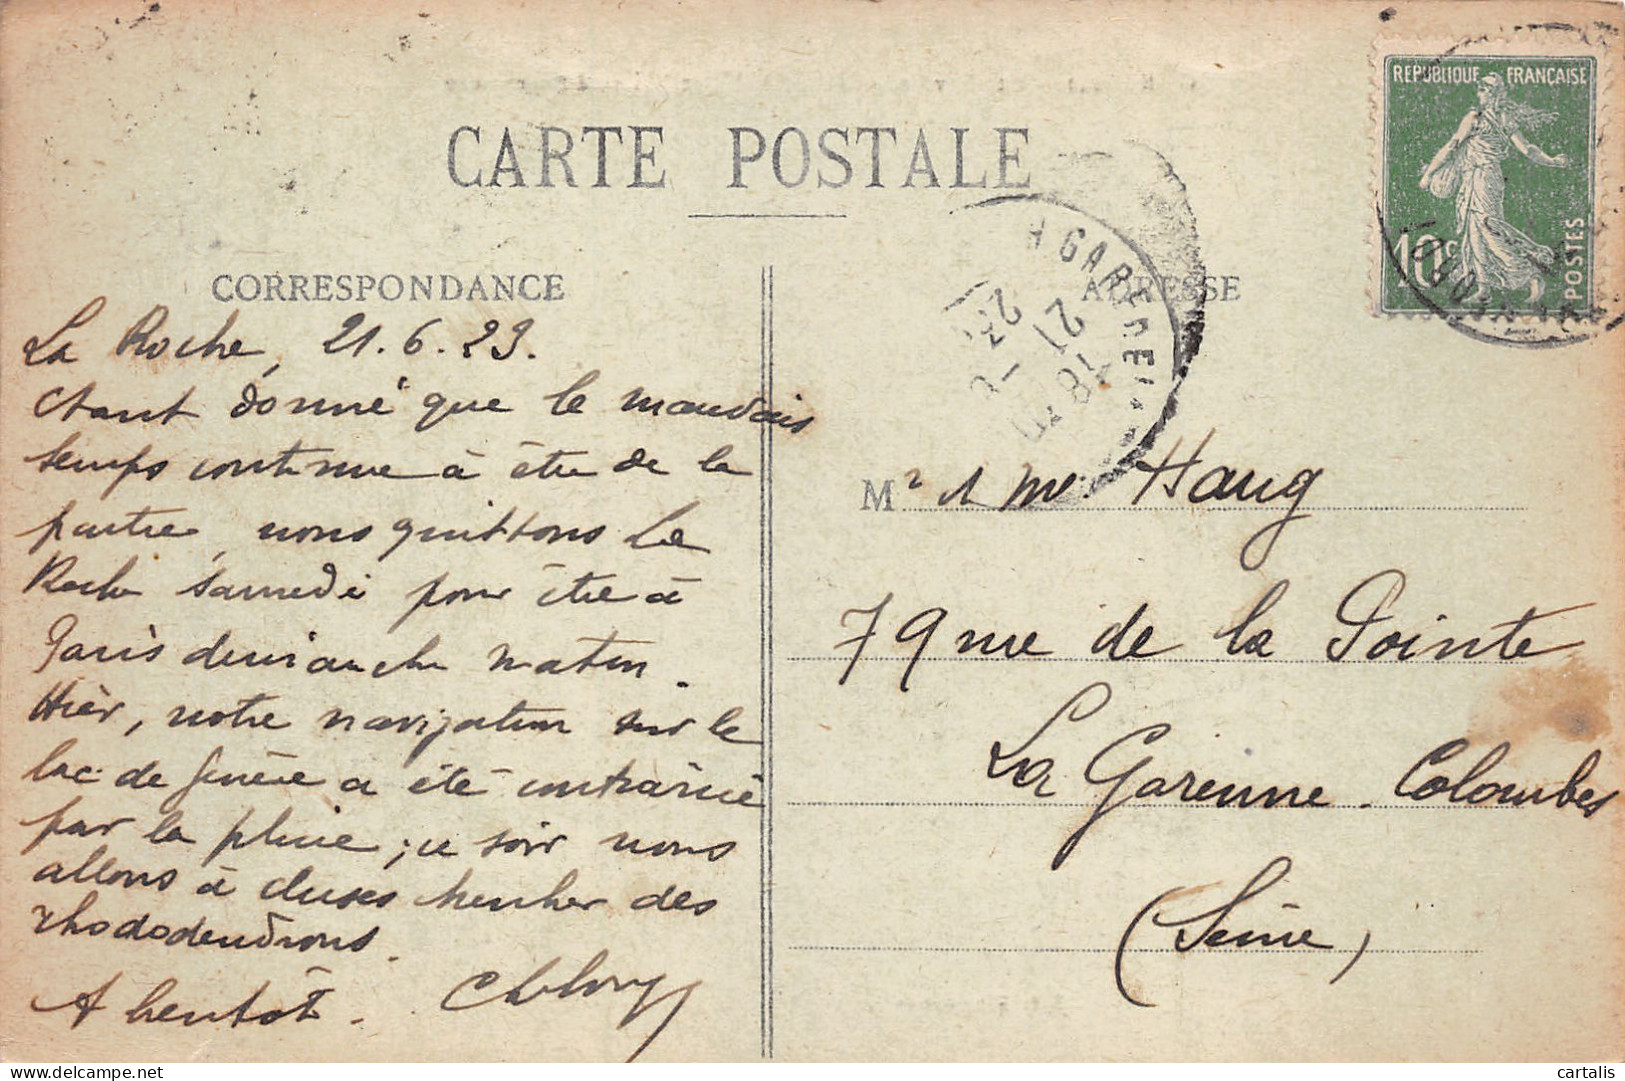 CARTE POSTALE
CORRESPONDANCE
ADRESSE
REPUBLIQUE FRANÇAISE
10c
POSTES
A GARENNE
La Roche, 21.6.23.
étant donné que le mauvais
temps continue à être de la
partie, nous quittons La
Roche samedi pour être à
Paris dimanche matin.
Hièr, notre navigation sur le
lac de Genève a été contrariée
par la pluie ; ce soir nous
allons à cluses chercher des
rhododendrons.
A bientôt.
Mr & Me. Haug
79 rue de la Pointe
La Garenne. Colombes
(Seine)
cartalis